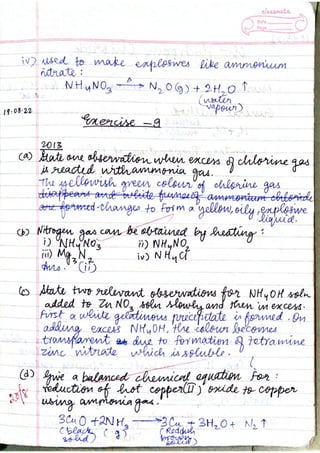 classmate
Date
Page
iv) used to make explosives like ammonium
nitrate :
NH4NO3 —Δ→ N2O(g) + 2H2O ↑
(water
vapour)
19.08.22
Exercise - 9
2013
(a) State one observation when excess of chlorine gas
is reacted with ammonia gas.
The yellowish green colour of chlorine gas
disappears and white fumes of ammonium chloride
are formed. changes to form a yellow, oily, explosive
liquid.
(b) Nitrogen gas can be obtained by heating :
i) NH4NO3 ii) NH4NO2
iii) Mg3N2 iv) NH4Cl
Ans. (ii)
(c) State two relevant observations for NH4OH soln
added to Zn NO3 soln slowly and then in excess.
First a white gelatinous precipitate is formed. On
adding excess NH4OH, the colour becomes
transparent as due to formation of tetramine
zinc nitrate which is soluble.
(d) Give a balanced chemical equation for :
reduction of hot copper (II) oxide to copper
using ammonia gas.
3CuO + 2NH3 → 3Cu + 3H2O + N2 ↑
(black (g) (Reddish
solid) brown
solid)